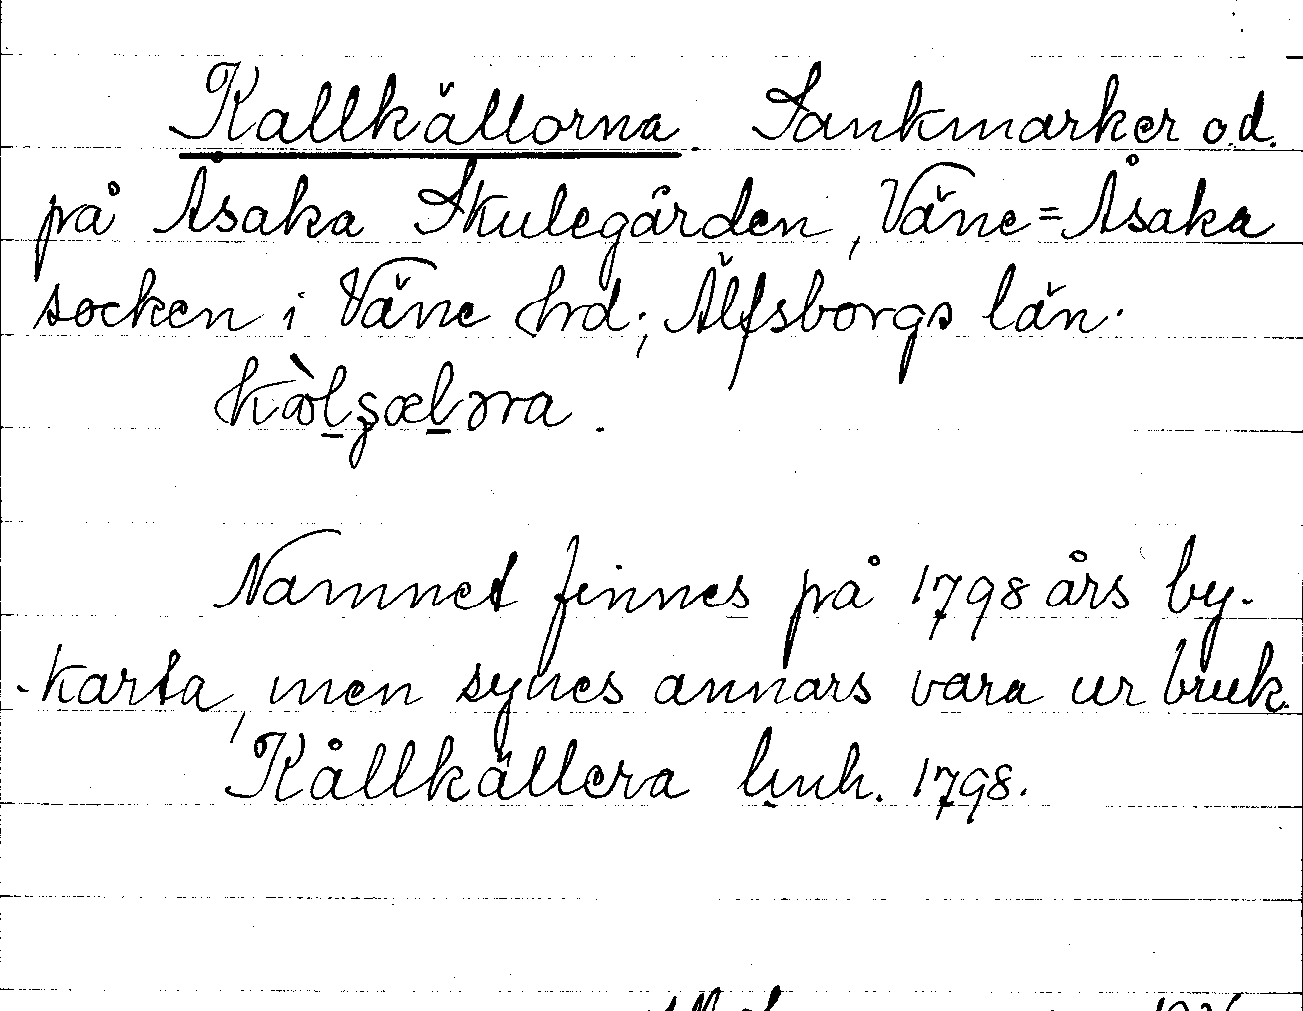 Kallkällorna. Sankmarker o.d.
på Åsaka Skulegården, Väne=Åsaka
socken i Väne hrd; Älfsborgs län.
Namnet finnes på 1798 års by-
-karta, men synes annars vara ur bruk.
Kållkällera 1798.